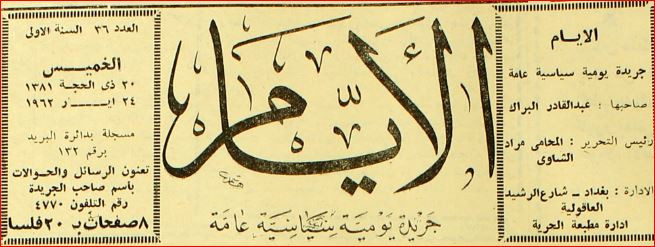 الايام
جريدة يومية سياسية عامة
صاحبها : عبدالقادر البراك
رئيس التحرير : المحامي مراد
الشاوى
الادارة : بغداد ــ شارع الرشيد
العاقولية
ادارة مطبعة الحرية
الأيام
جريدة يومية سياسية عامة
العدد ٣٦ السنة الاولى
الخميس
٢٠ ذي الحجة ١٣٨١
٢٤ ايــــار ١٩٦٢
مسجلة بدائرة البريد
برقم ١٣٢
تعنون الرسائل والحوالات
باسم صاحب الجريدة
رقم التلفون ٤٧٧٠
٨ صفحات بـ ٢٠ فلسا